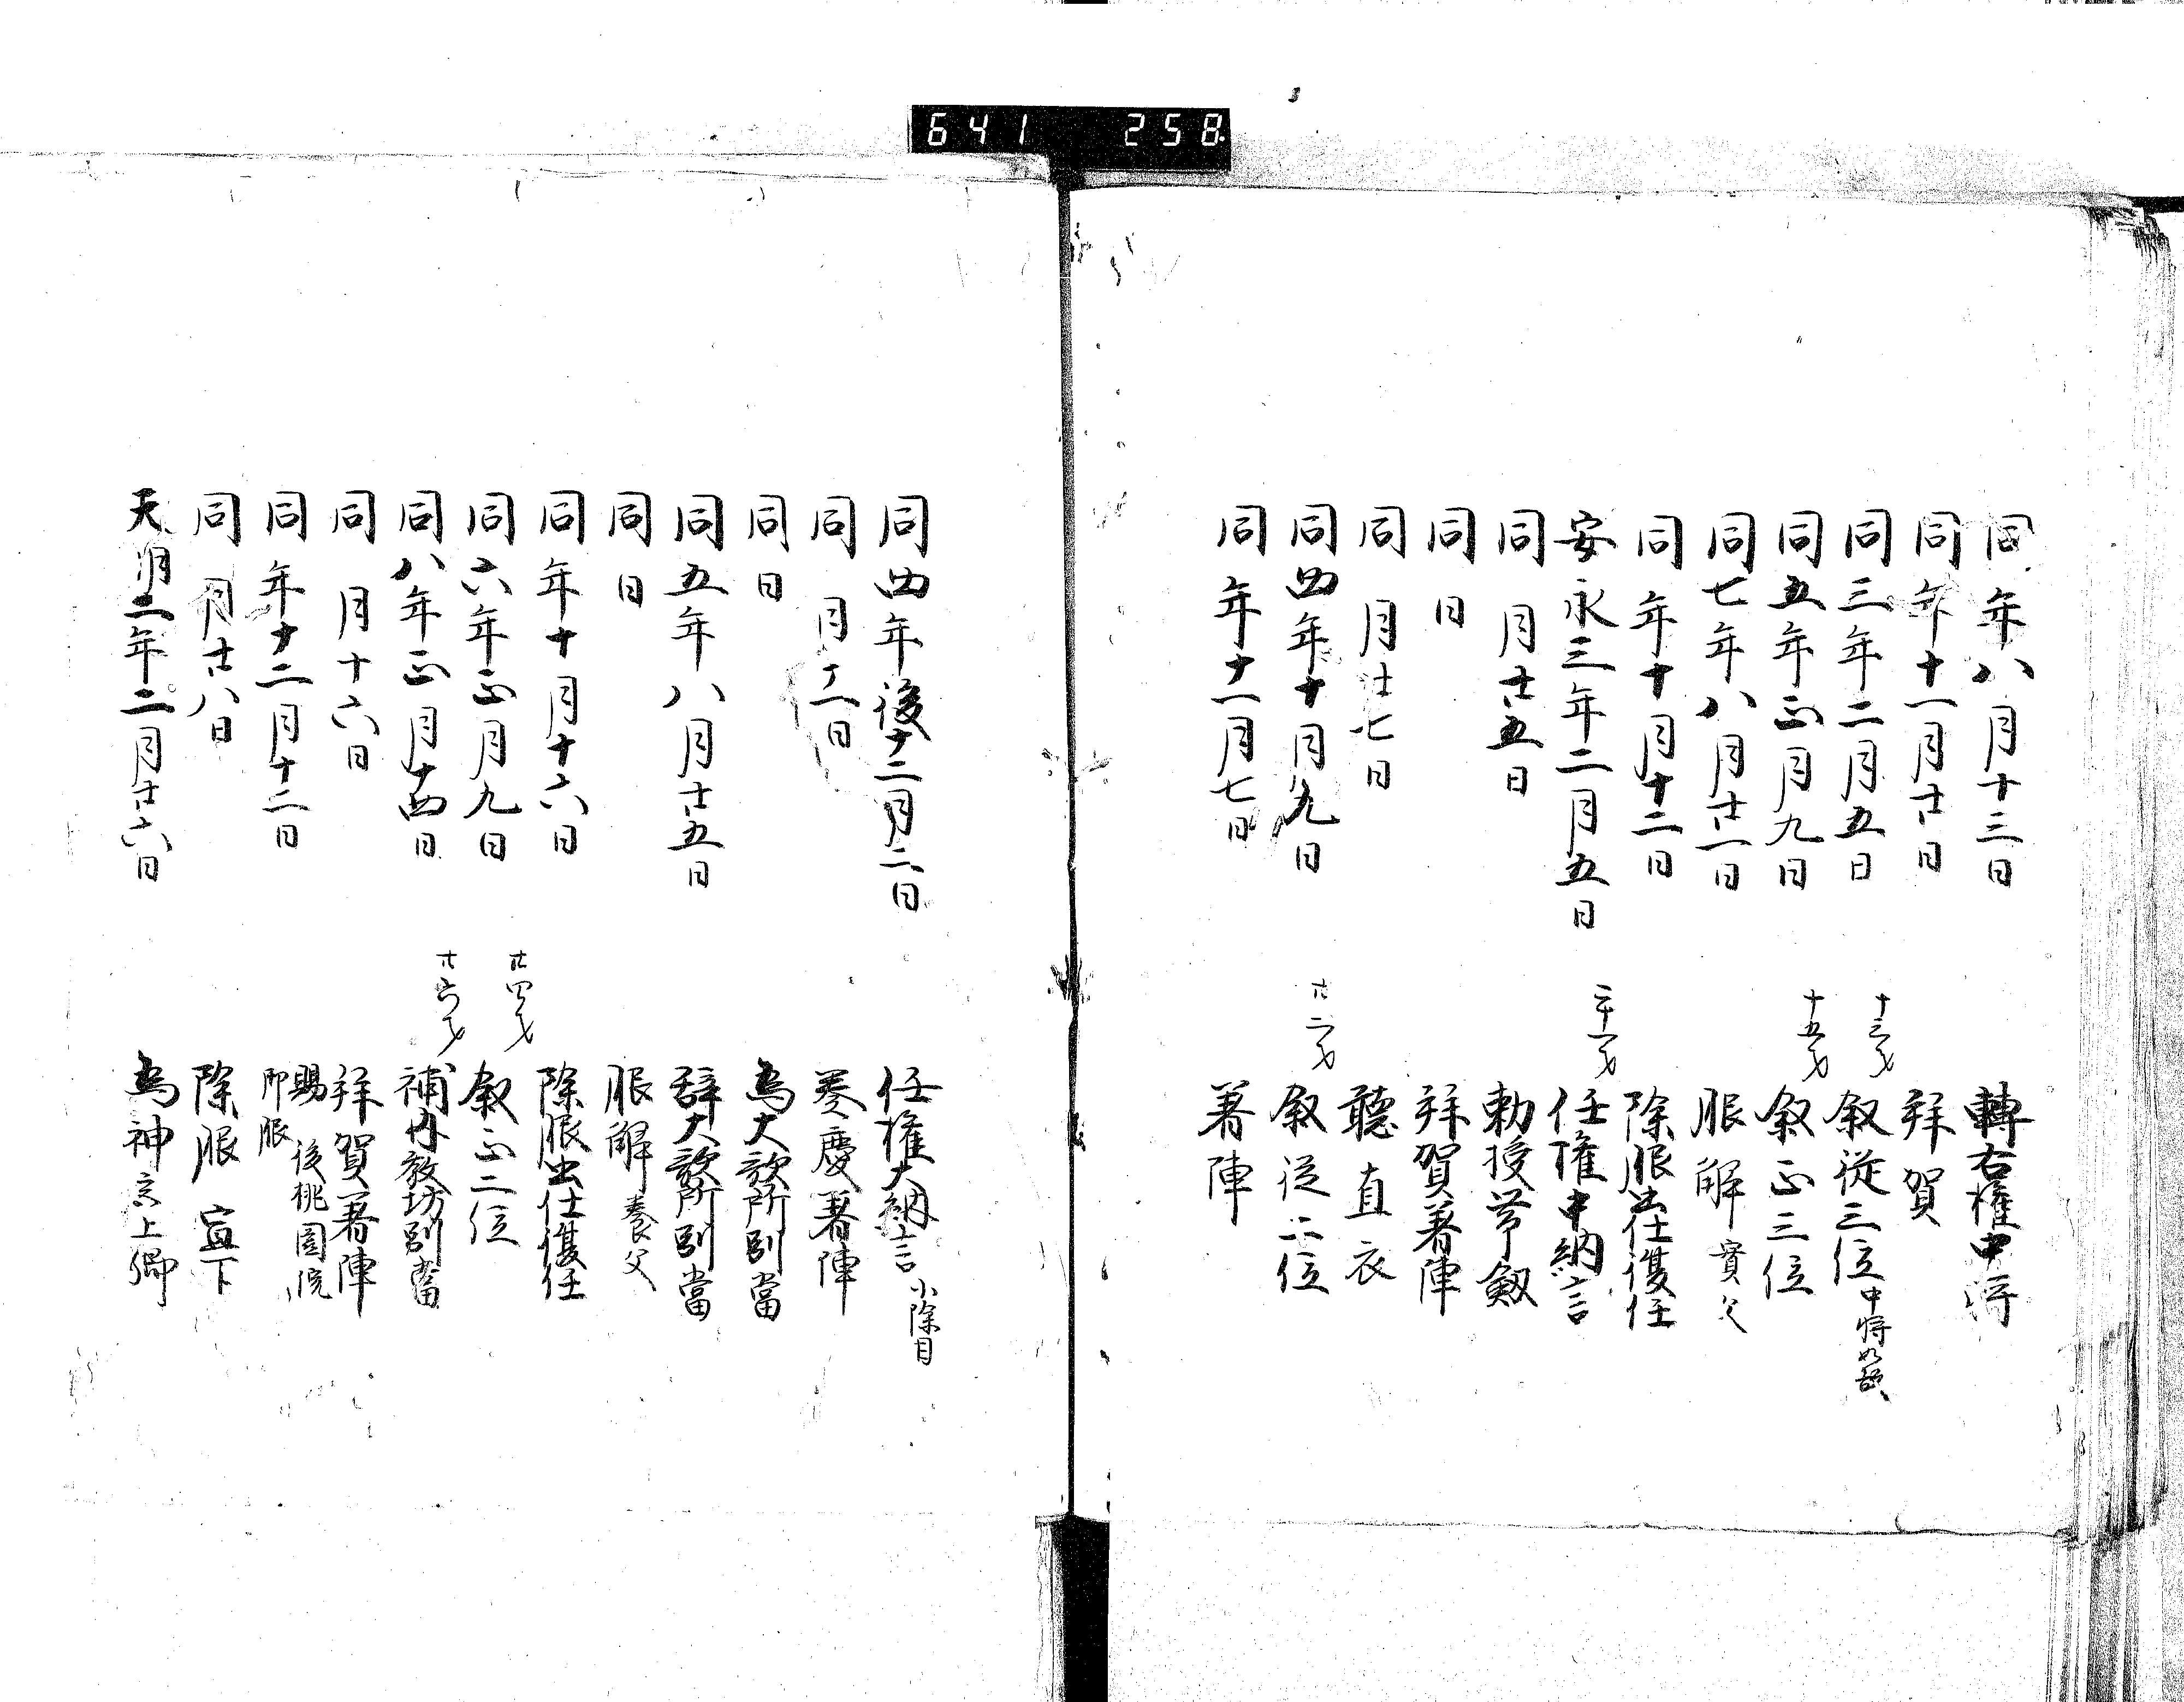 641 258
同年八月十三日 轉右權中將
同年十一月廿日 拜賀
同三年二月五日 十三才 叙從三位 中將如故
同五年正月九日 十五才 叙正三位
同七年八月廿一日 服解 實父
同年十月十二日 除服出仕復任
安永三年二月五日 二十一才 任權中納言
同月廿五日 勅授帶劔
同日 拜賀著陣
同月廿七日 聽直衣
同四年十月九日 廿二才 叙從二位
同年十一月七日 著陣
同四年後十二月二日 任權大納言 小除目
同月 奏慶著陣
同日 為大歌所別當
同五年八月廿五日 辞大歌所別當
同日 服解 養父
同年十月十六日 除服出仕復任
同六年正月九日 廿四才 叙正二位
同八年正月十四日 廿六才 補内教坊別當
同月十六日 拜賀著陣
同年十二月十二日 賜後桃園院御服
同月廿八日 除服宣下
天明二年二月廿六日 為神宮上卿